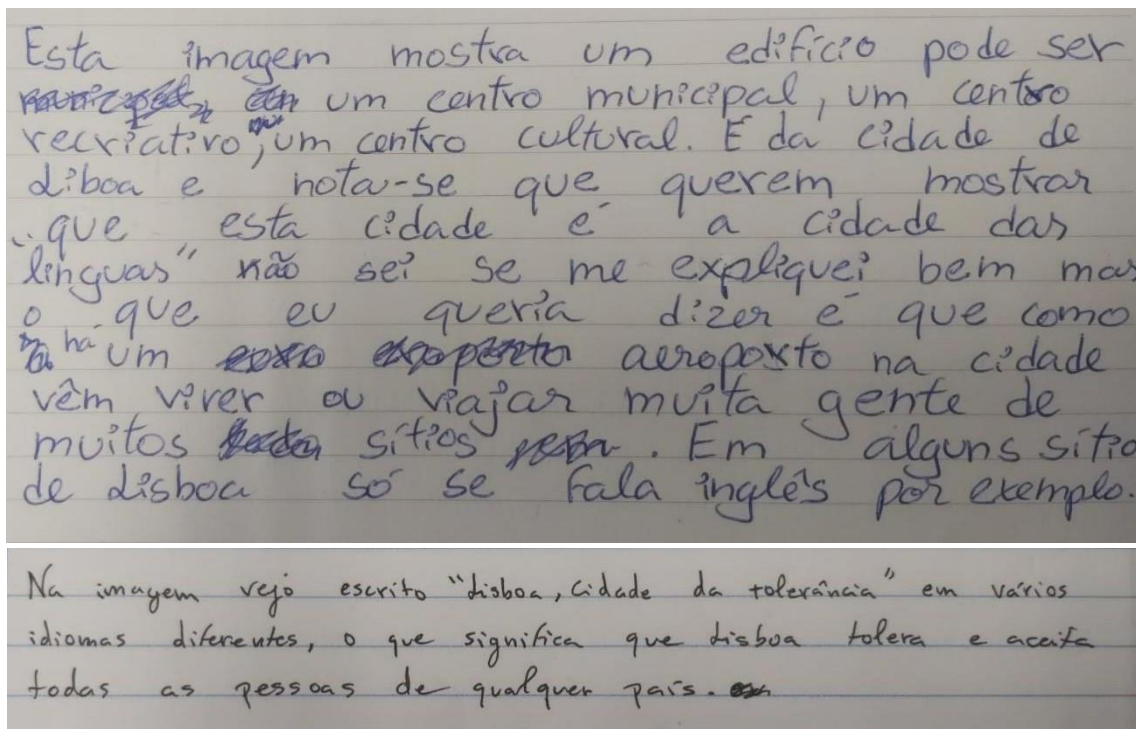 Esta imagem mostra um edifício pode ser
um centro municipal, um centro
recriativo, um centro cultural. É da cidade de
Liboa e nota-se que querem mostrar
"que esta cidade é a cidade das
linguas" não sei se me expliquei bem mas
o que eu queria dizer é que como
há um aeroporto na cidade
vêm viver ou viajar muita gente de
muitos sítios . Em alguns sítio
de Lisboa só se fala inglês por exemplo.
Na imagem vejo escrito "Lisboa, cidade da tolerância" em vários
idiomas diferentes, o que significa que Lisboa tolera e aceita
todas as pessoas de qualquer país.